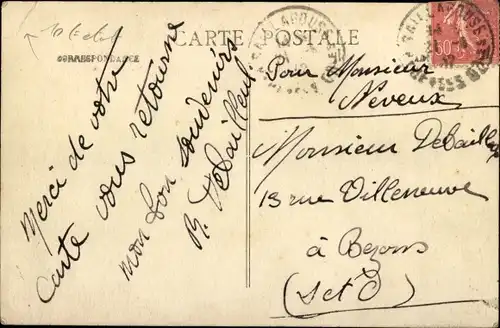 CARTE POSTALE
CORRESPONDANCE
Merci de votre
Carte vous retourne
mon bon souvenirs
R. Debailleul
Pour Monsieur
Neveux
Monsieur Debailleul
13 rue Villeneuve
à Bezons
(S et O)
50